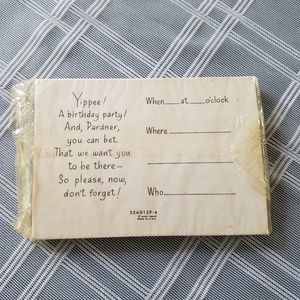 Yippee!
A birthday party!
And, Pardner,
you can bet
That we want you
to be there—
So please, now,
don't forget!
When____at____o'clock
Where
Who
33AD139-6